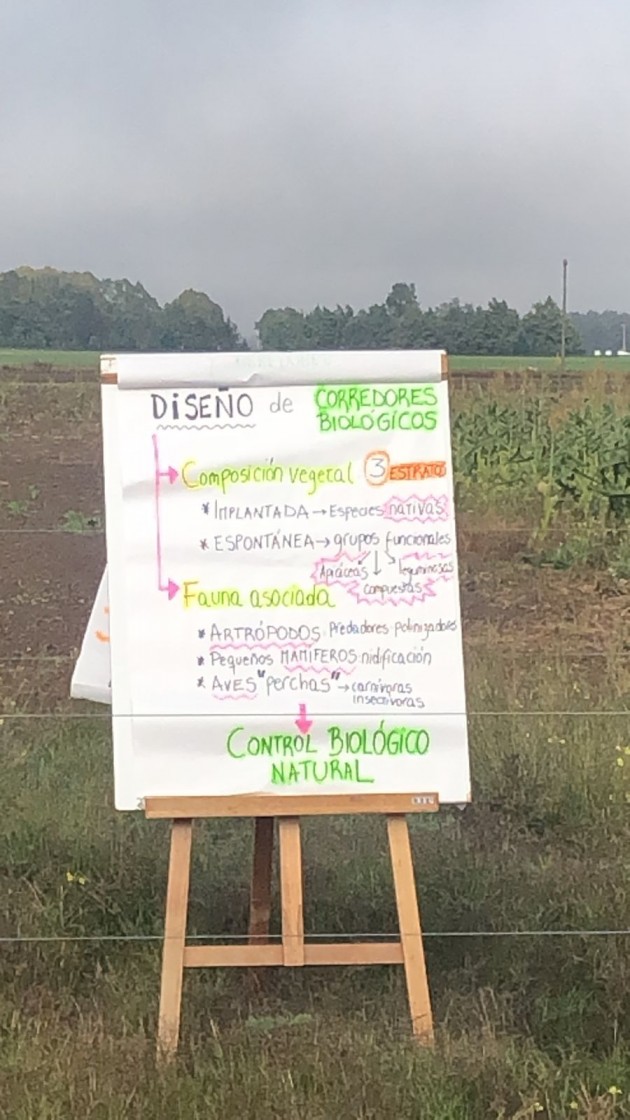 DiSEÑO de CORREDORES BIOLÓGICOS
Composición vegetal 3 ESTRATOS
* IMPLANTADA → Especies nativas
* ESPONTÁNEA → grupos funcionales
Apiáceas leguminosas
compuestas
Fauna asociada
* ARTRÓPODOS: Predadores polinizadores
* Pequeños MAMÍFEROS: nidificación
* AVES "perchas" → carnívoras
insectívoras
CONTROL BIOLÓGICO
NATURAL